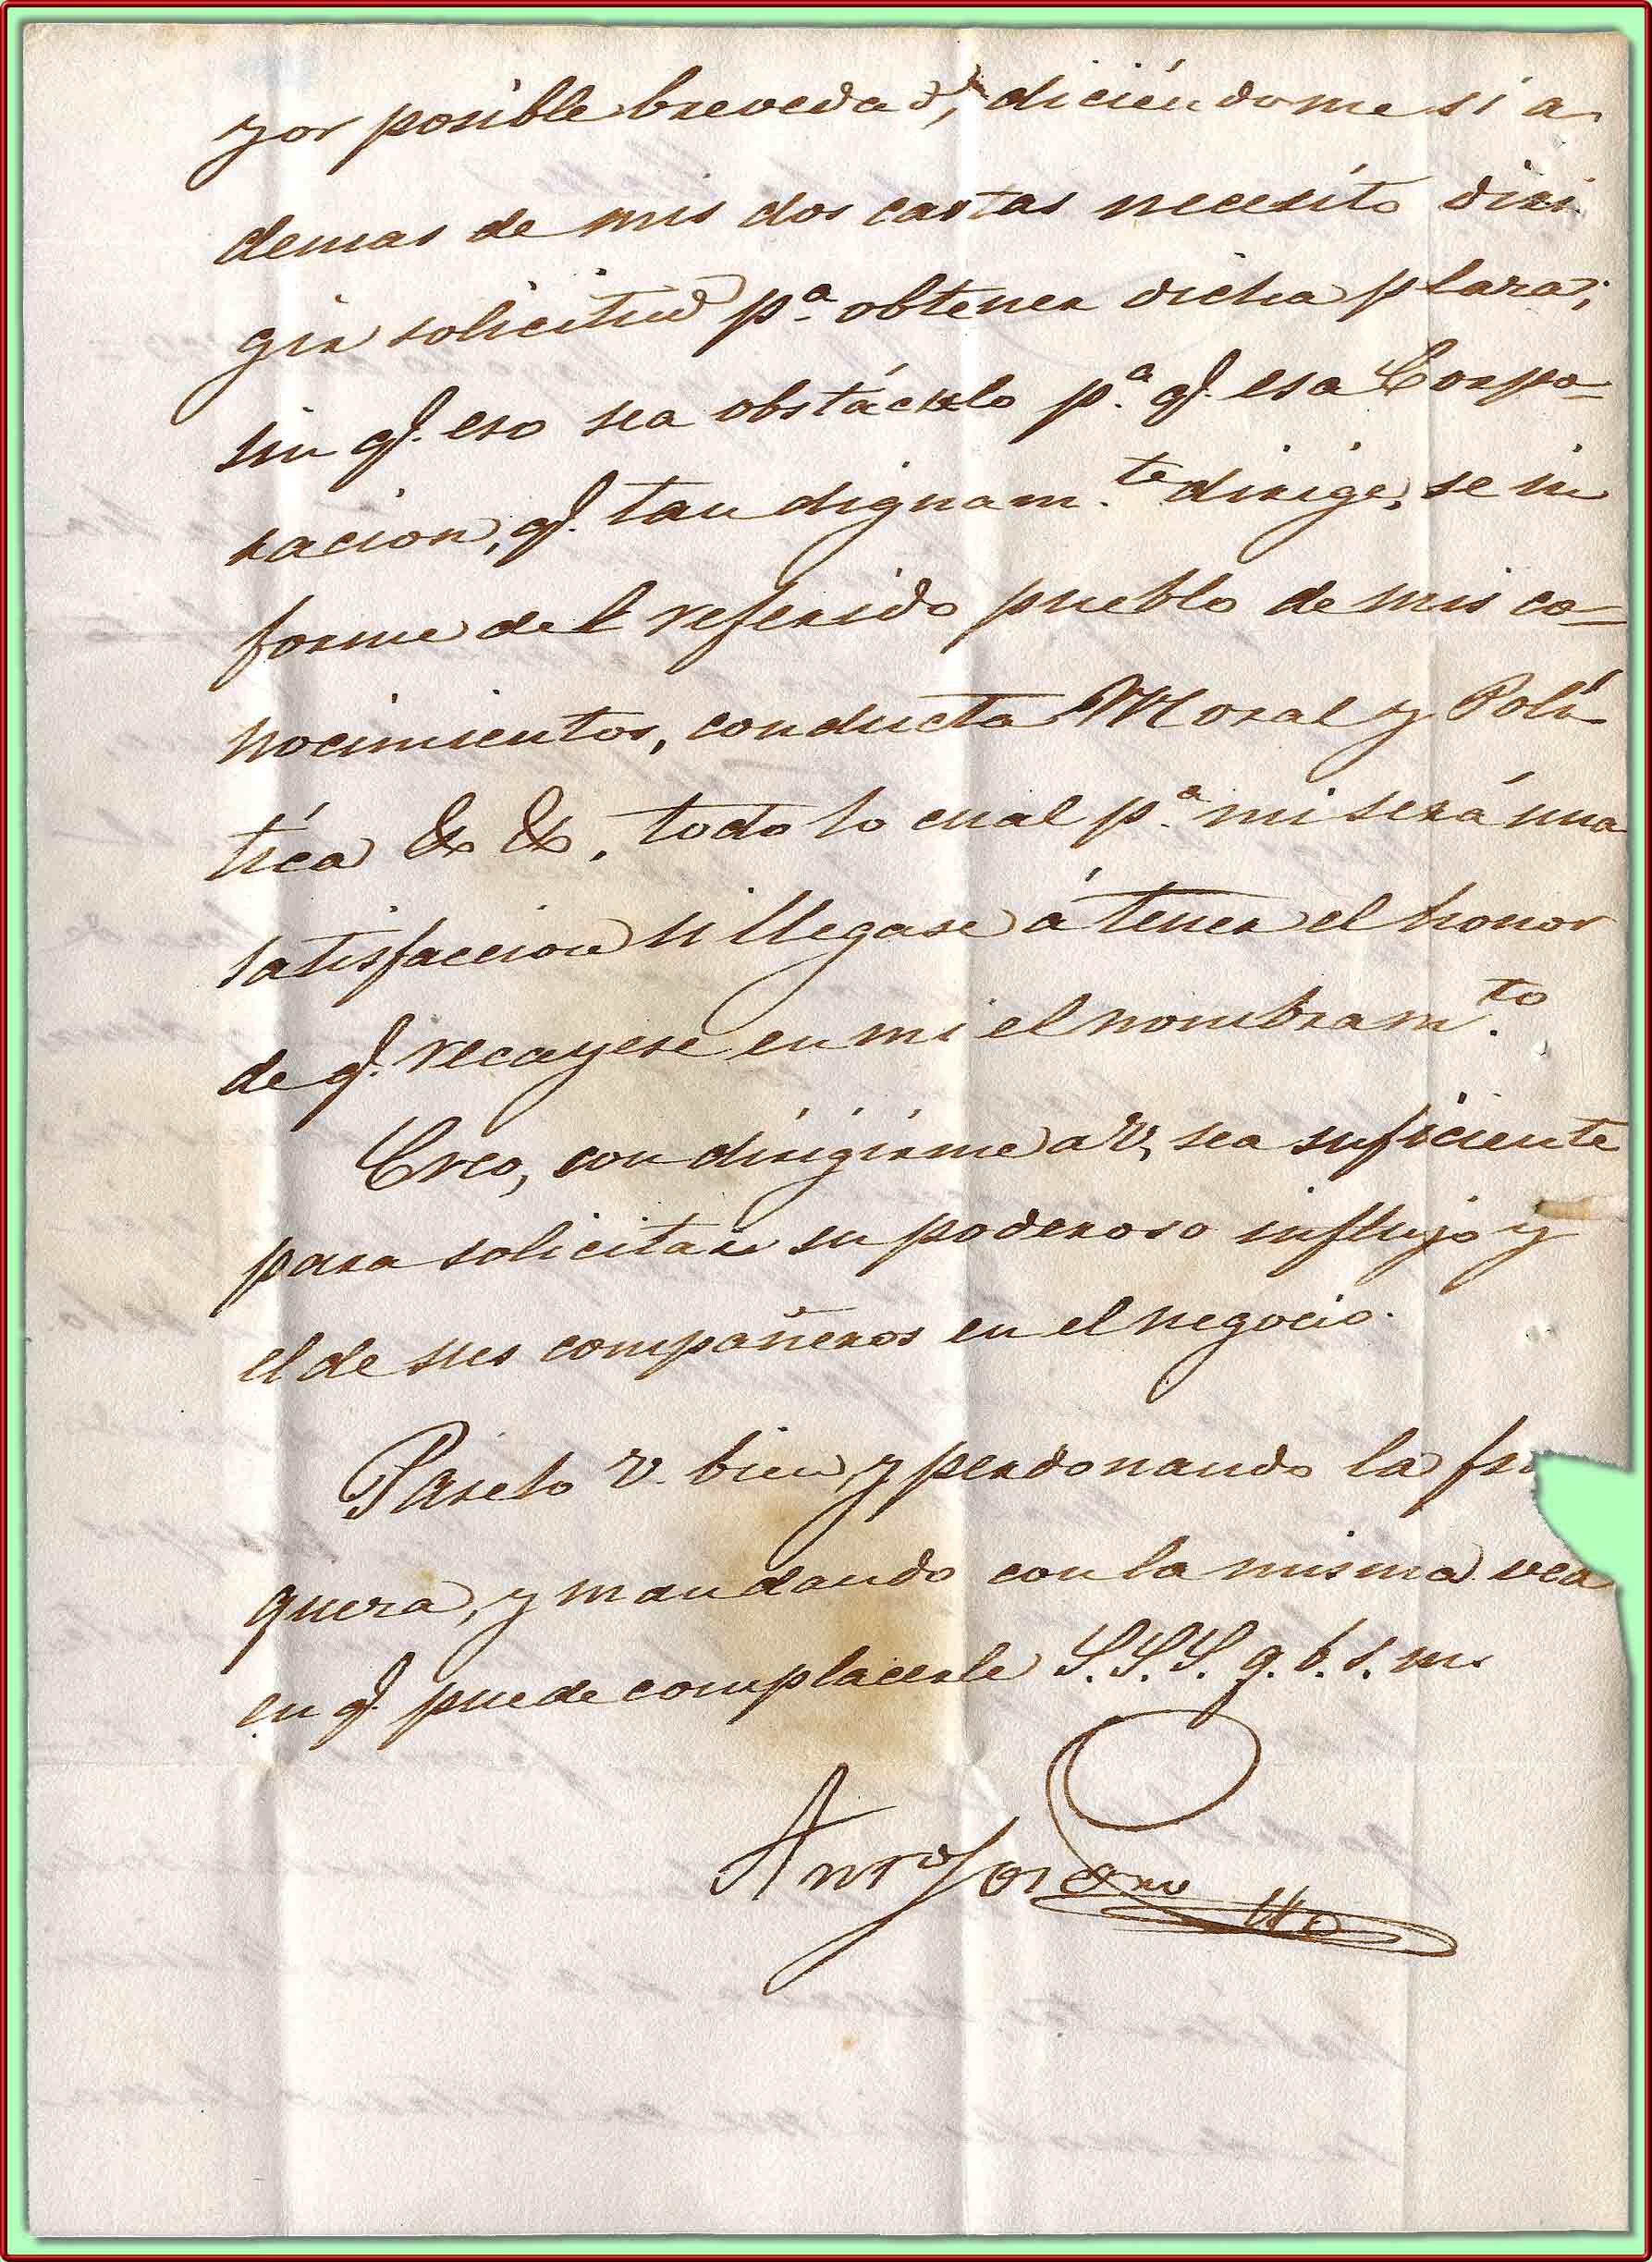 yor posible brevedad, diciéndome si a
demas de mis dos cartas necesito diri
gir solicitud pª. obtener dicha plaza;
sin q. eso sea obstáculo pª. q. esa Corpo-
racion, q. tan dignam.te dirige, se in
forme del referido pueblo de mis co=
nocimientos, conducta Moral y Polí-
tíca & &. todo lo cual pª. mi será una
satisfaccion si llegase á tener el honor
de q. recayese en mi el nombram.to
Creo, con dirigírme a V, sea suficiente
para solicitar su poderoso influjo y
el de sus compañeros en el negocio.
Paselo V. bien y perdonando la fran
quera, y mandando con la misma vea
en q. puede complacerle S.S.S. q. b. s. m.
Antº